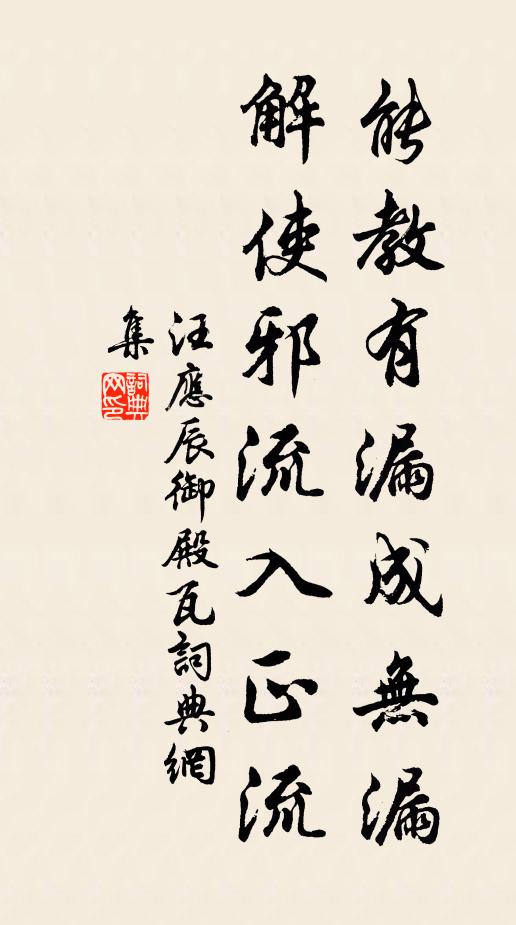 能教有漏成無漏
解使邪流入正流
汪應辰御殿瓦詞典網
集
詞典網印